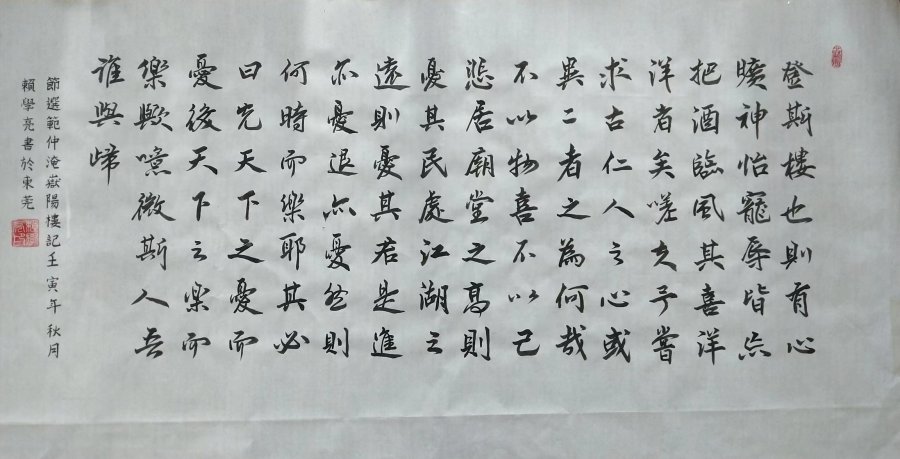 登斯樓也則有心
曠神怡寵辱皆忘
把酒臨風其喜洋
洋者矣嗟夫予嘗
求古仁人之心或
異二者之為何哉
不以物喜不以己
悲居廟堂之高則
憂其民處江湖之
遠則憂其君是進
亦憂退亦憂然則
何時而樂耶其必
曰先天下之憂而
憂後天下之樂而
樂歟噫微斯人吾
誰與歸
節選範仲淹嶽陽樓記壬寅年秋月
賴學亮書於東莞